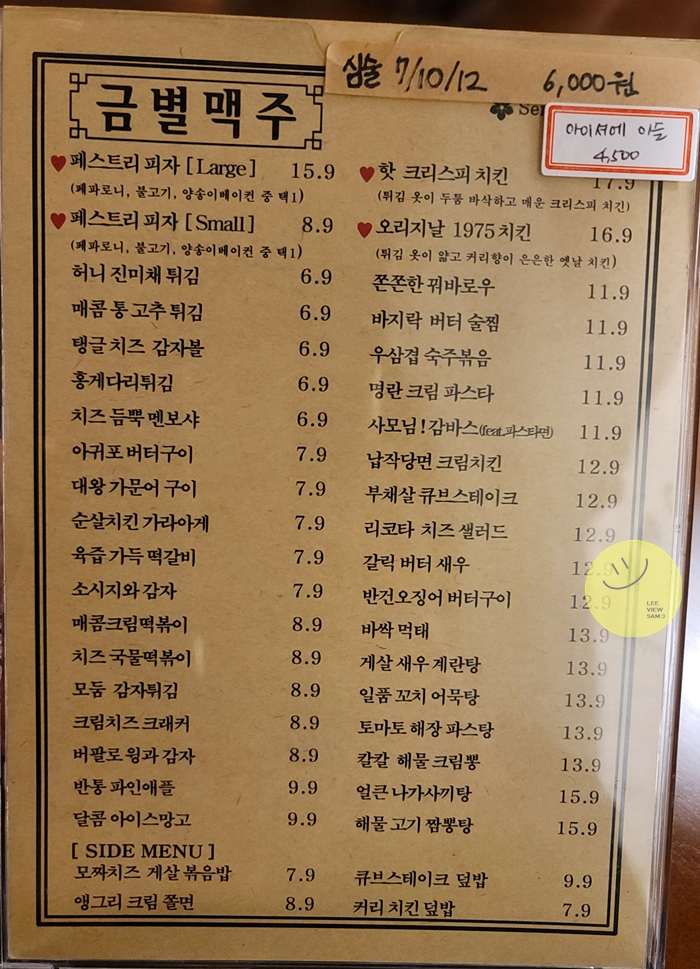 심술 7/10/12 6,000원
금별맥주
아이셔에 이슬
4,500
♥페스트리 피자 [Large] 15.9
(페파로니, 불고기, 양송이베이컨 중 택1)
♥페스트리 피자 [Small] 8.9
(페파로니, 불고기, 양송이베이컨 중 택1)
허니 진미채 튀김 6.9
매콤 통 고추 튀김 6.9
탱글 치즈 감자볼 6.9
홍게다리튀김 6.9
치즈 듬뿍 멘보샤 6.9
아귀포 버터구이 7.9
대왕 가문어 구이 7.9
순살치킨 가라아게 7.9
육즙 가득 떡갈비 7.9
소시지와 감자 7.9
매콤크림떡볶이 8.9
치즈 국물떡볶이 8.9
모둠 감자튀김 8.9
크림치즈 크래커 8.9
버팔로 윙과 감자 8.9
반통 파인애플 9.9
달콤 아이스망고 9.9
♥핫 크리스피 치킨 17.9
(튀김 옷이 두툼 바삭하고 매운 크리스피 치킨)
♥오리지날 1975 치킨 16.9
(튀김 옷이 얇고 커리향이 은은한 옛날 치킨)
쫀쫀한 꿔바로우 11.9
바지락 버터 술찜 11.9
우삼겹 숙주볶음 11.9
명란 크림 파스타 11.9
사모님! 감바스(feat.파스타면) 11.9
납작당면 크림치킨 12.9
부채살 큐브스테이크 12.9
리코타 치즈 샐러드 12.9
갈릭 버터 새우 12.9
반건오징어 버터구이 12.9
바싹 먹태 13.9
게살 새우 계란탕 13.9
일품 꼬치 어묵탕 13.9
토마토 해장 파스탕 13.9
칼칼 해물 크림뽕 13.9
얼큰 나가사끼탕 15.9
해물 고기 짬뽕탕 15.9
[ SIDE MENU ]
모짜치즈 게살 볶음밥 7.9
앵그리 크림 쫄면 8.9
큐브스테이크 덮밥 9.9
커리 치킨 덮밥 7.9
LEE
VIEW
SAM:)